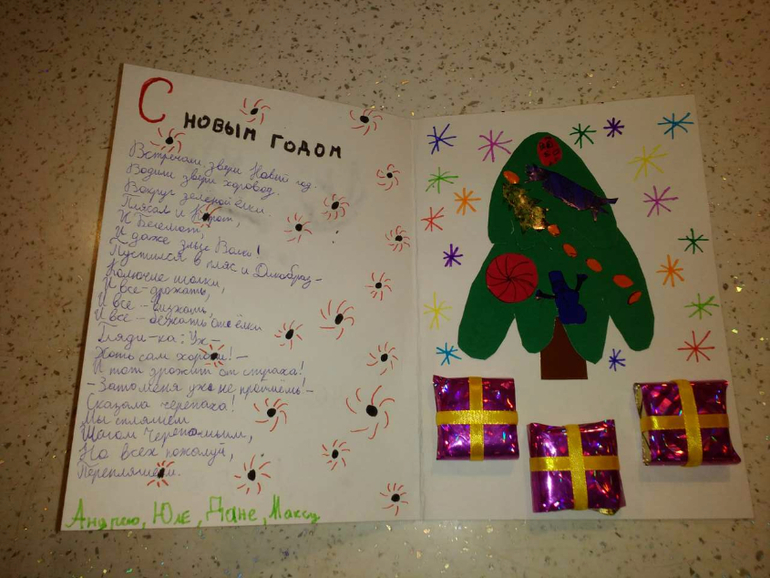 С НОВЫМ ГОДОМ
Встречали звери Новый год.
Водили звери хоровод.
Вокруг зеленой ёлки.
Плясал и Крот,
И Бегемот,
И даже злые Волки!
Пустился в пляс и Дикобраз-
Колючие иголки,
И все-дрожать,
И все-визжать,
И все-бежать от ёлки
Гляди-ка: Уж-
Хоть сам хорош!-
И тот дрожит от страха!
-Зато меня уж не проймёшь!-
Сказала черепаха!
Мы спляшем
Шагом Черепашьим,
Но всех пожалуй,
Перепляшем.
Андрею, Юле, Дане, Максу